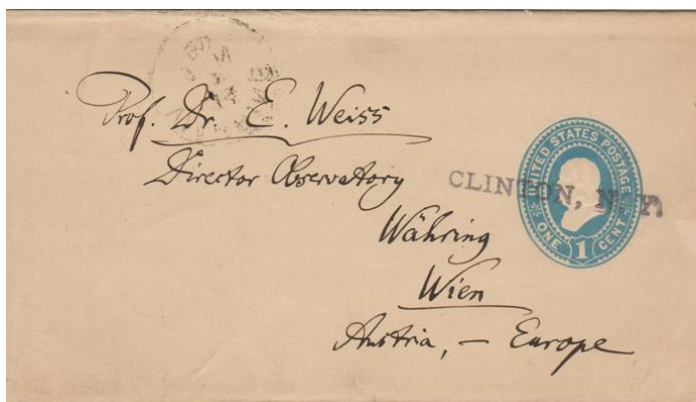 Prof. Dr. E. Weiss
Director Observatory
Währing
Wien
Austria, — Europe
CLINTON, N. Y.
UNITED STATES POSTAGE
ONE 1 CENT